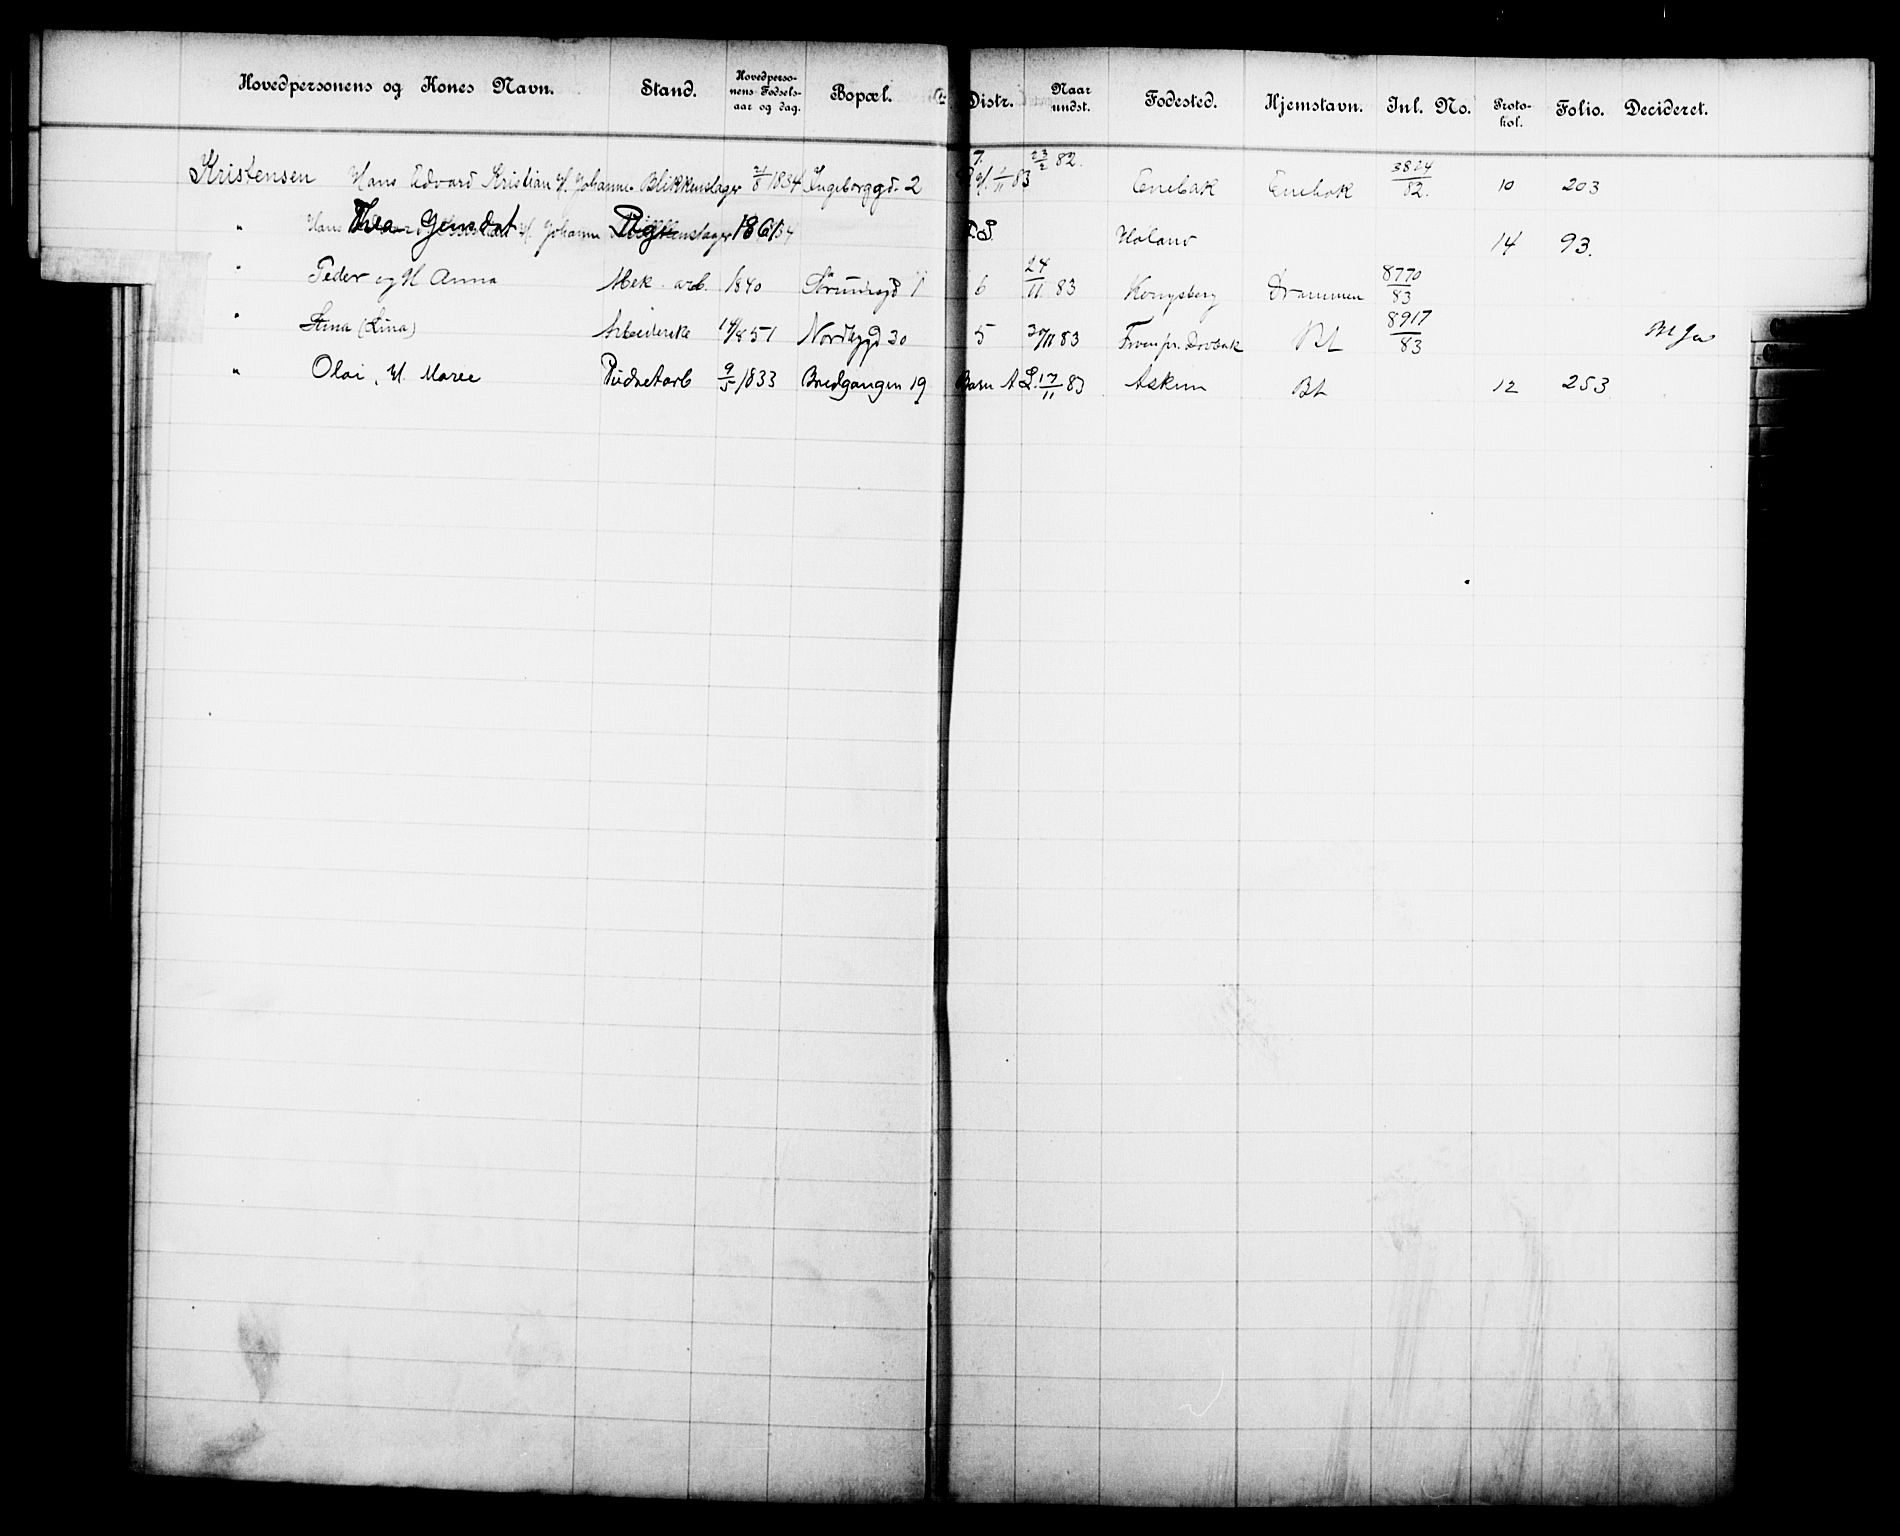 Hovedpersonens og Kones Navn. Stand. Hovedpersonens Fødselsaar og dag. Bopæl. Distr. Naar undst. Fødested. Hjemstavn. Inl. No. Protokol. Folio. Decideret.
Kristensen Hans Edvard Kristian H. Johanne Blikkenslager 1834 Ingeborggd. 2 7. 23/2 82. 1/11 83 Enebak Enebak 3824/82. 10 203
" Thea Pige 1861 Høland 14 93.
" Peder og H Anna Mek. arb. 1840 6 24/11 83 Kongsberg Drammen 8770/83
" Stina (Lina) Arbeiderske 14/8 51 Nordbygd 30 5 30/11 83 Bt 8917/83
" Olai, H. Maree 9/5 1833 Bredgangen 19 17/11 83 Askim Bt 12 253